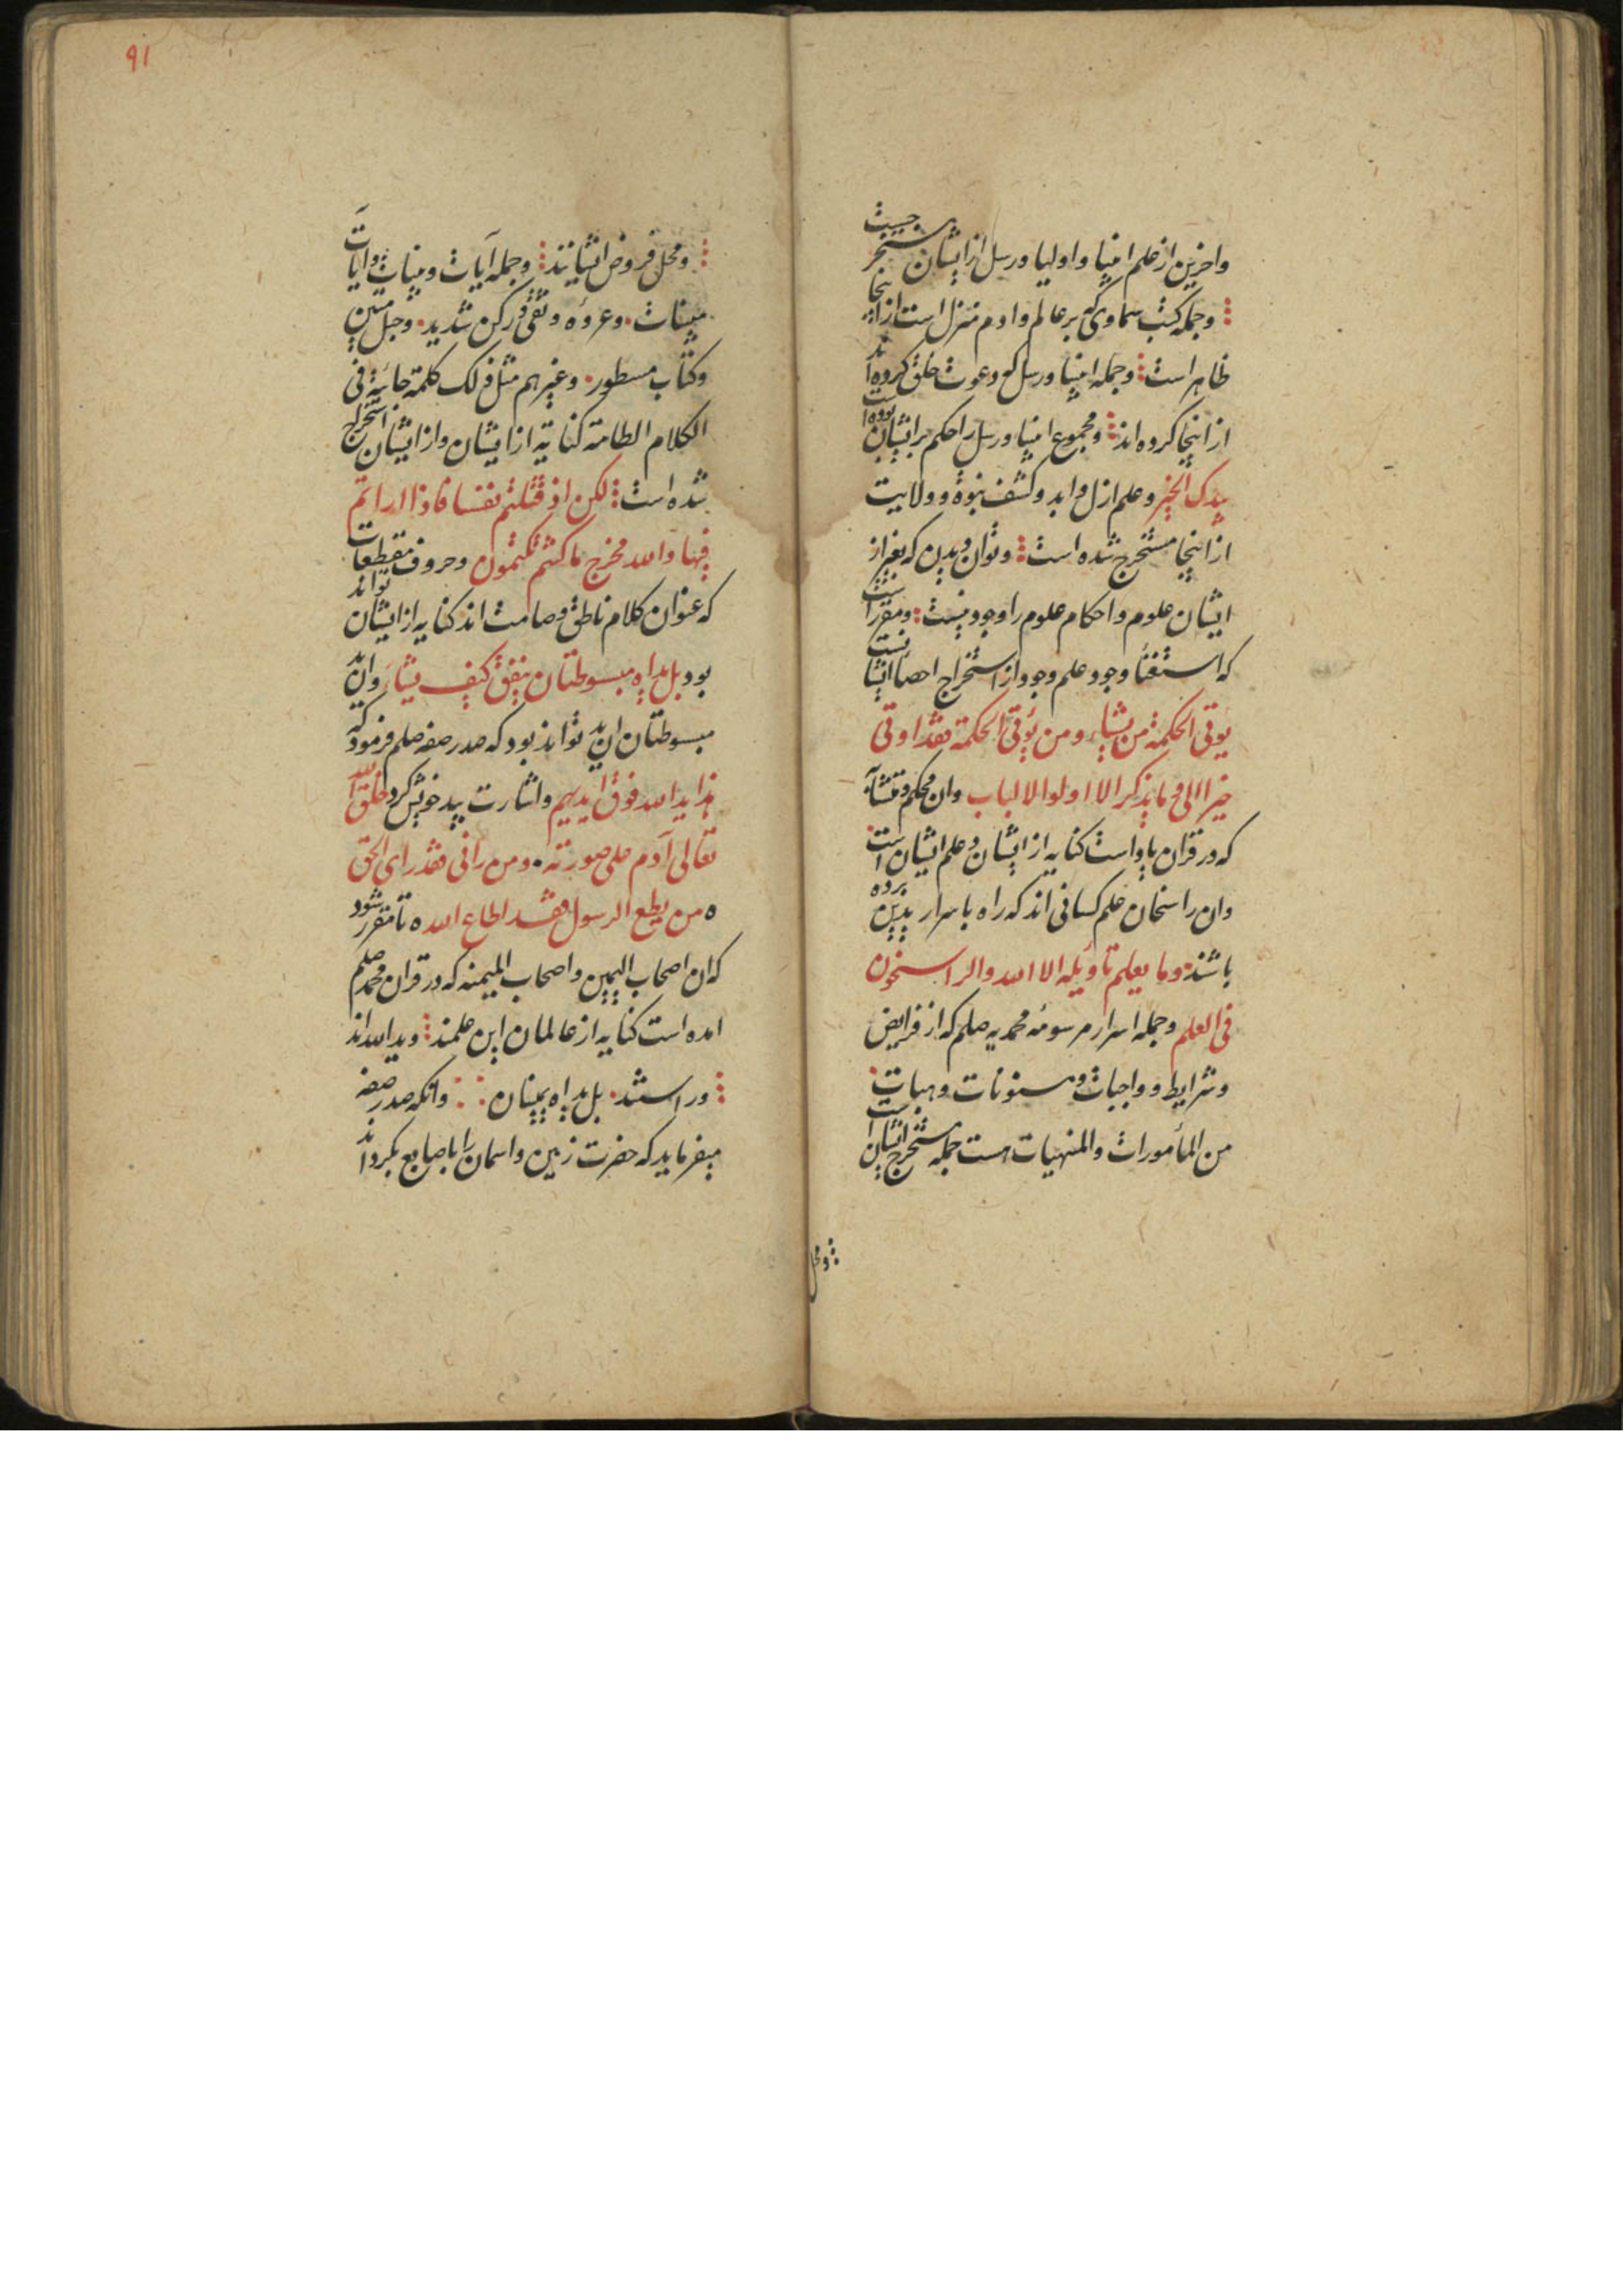 واخرین از علم انبیا و اولیا و رسل از ایشان مستخرجست
و جمله کتب سماوی که بر عالم و ادم منزل است از اینجا
ظاهر است و جمله انبیا و رسل که دعوت خلق کرده اند
از اینجا کرده اند و مجموع انبیا و رسل را حکم بر ایشان بوده است
بیدک الخیر و علم ازل و ابد و کشف نبوة و ولایت
از اینجا مستخرج شده است و توان دیدن که بغیر از
ایشان علوم و احکام علوم را وجود نیست و مقرر است
که استغنا وجود علم وجود از استخراج احصا ایشانست
یؤتی الحکمة من یشاء و من یؤتی الحکمة فقد اوتی
خیرا الی و ما یذکر الا اولوا الالباب وان محکم و متشابه
که در قران یاد است کنایه از ایشان و علم ایشان است
وان راسخان علم کسانی اند که راه باسرار بدین برده
باشند وما یعلم تاویله الا الله والراسخون
فی العلم و جمله اسرار مرسومه محمدیه صلم که از فرایض
و شرایط و واجبات و مسنونات و هیات
من المأمورات والمنهیات هست جمله مستخرج ایشان است
و محل
۹۱
و محل فروض ایشانند و جمله آیات و بینات و ایات
مبینات و عروه وثقی و رکن شدید و حبل متین
و کتاب مسطور و غیرهم مثل ذلک کلمة جائیة فی
الکلام الطامة کنایة از ایشان و از ایشان استخراج
شده است لکن اذ قتلتم نفسا فاذا اراتم
فیها والله مخرج ما کنتم تکتمون و حروف مقطعات
که عنوان کلام ناطق و صامت اند کنایه از ایشان تواند
بود بل یداه مبسوطتان ینفق کیف یشاء وان ید
مبسوطتان ان ید تواند بود که صدر صفه صلم فرمود که
هذا ید الله فوق ایدیهم و اشارت بید خویش کرد خلق الله
تعالی آدم علی صورته ومن رانی فقد رای الحق
ومن یطع الرسول فقد اطاع الله تا مقرر شود
که ان اصحاب الیمین واصحاب المیمنه که در قران محمد صلم
امده است کنایه از عالمان این علمند و ید الله اند
و راستند بل یداه یمینان و انکه صدر صفه
میفرماید که حضرت زمین و اسمان را باصابع بکرداند